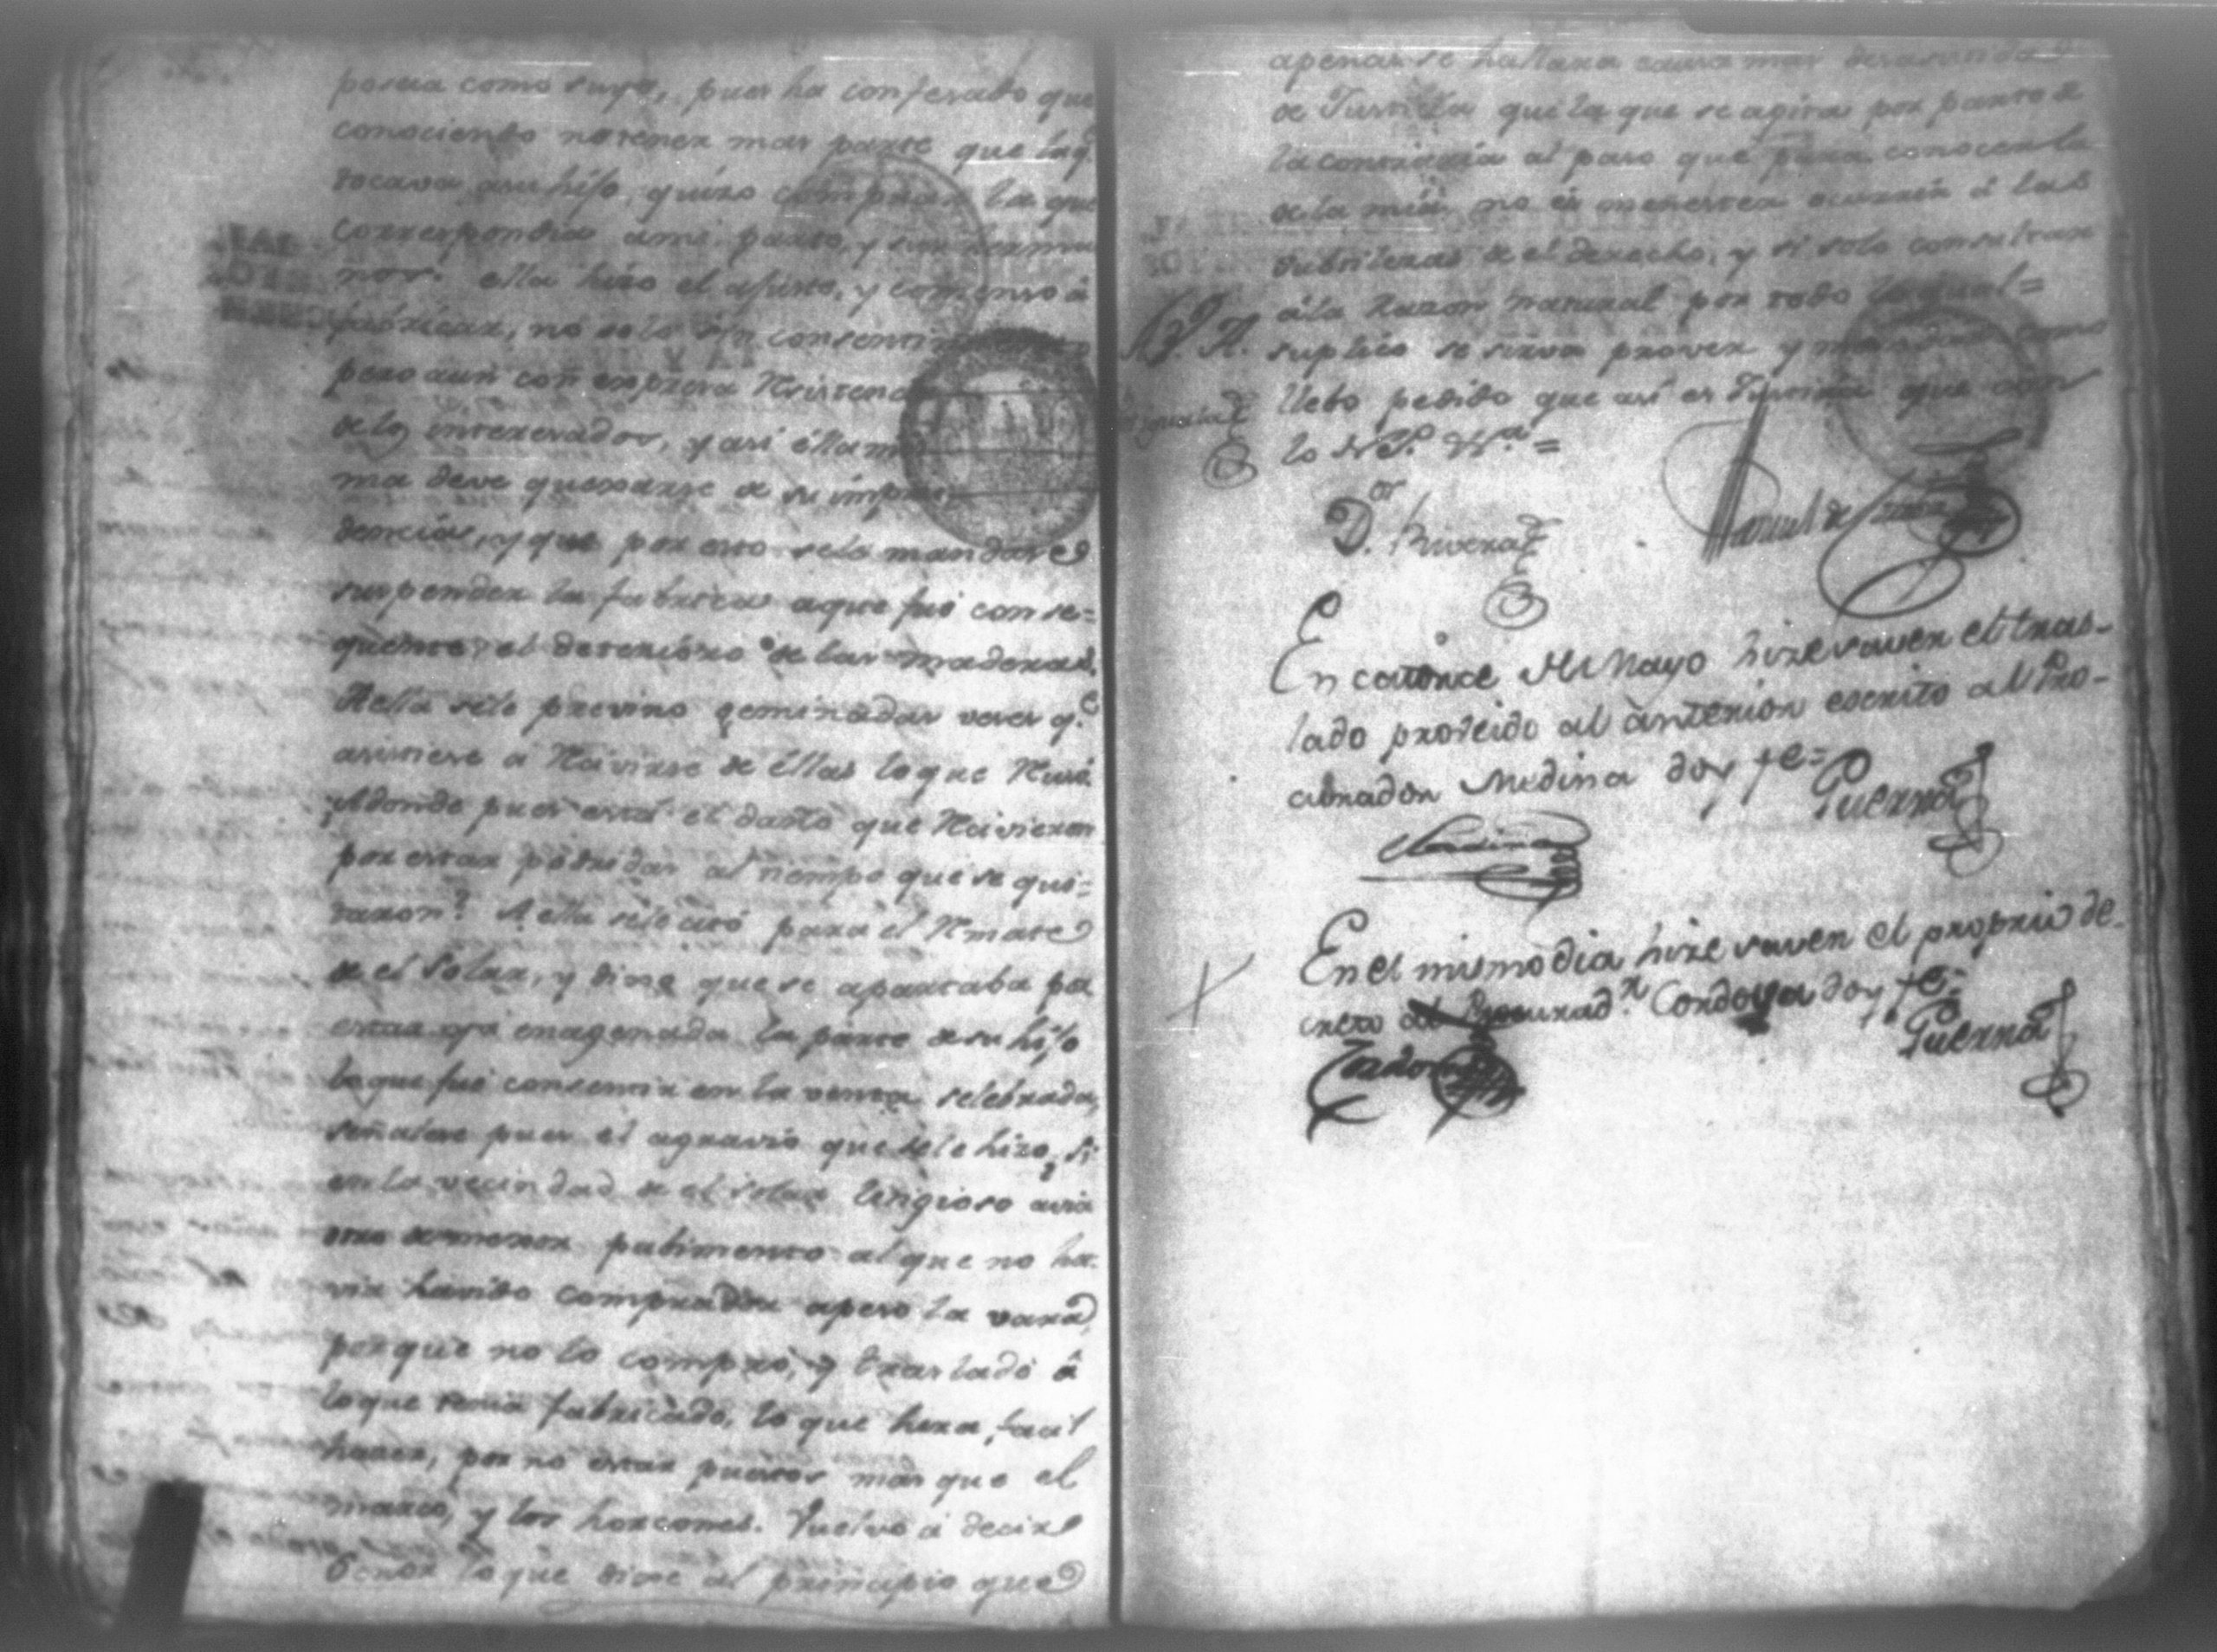 poseia como suyo, pues ha confesado que
conociendo no tener mas parte que la q.e
tocava a su hijo, quiso comprar la que
correspondia a mi parte, y sus herma
nos. ella hizo el ajuste, y comenso á
fabricar, no solo sin consentim
pero aun con expresa Resistenc
de los interesados, y asi élla mi
ma deve quexarse de su impru
dencia, y que por esso se la mandase
suspender la fabrica aque fué conse=
quente, el deterióro de las maderas.
A ella se le previno geminadas veces q.e
asistiese á Recivirse de éllas lo que Reusó
Adonde pues está el daño que Recivieron
por estar podridas al tiempo que se qui=
taron? A ella se le citó para el Remate
de el Solar, y dixo que se apartaba por
estar ya enagenada la parte de su hijo
lo que fué consentir en la venta selebrada,
señalese pues el agravio que se le hizo, si
en la vecindad de el solar litigioso avia
otro de menor pabimento al que no ha
via havido comprador apeso la vara
porque no lo compró, y trasladó á
lo que tenia fabricado, lo que hera facil
hacer, por no estar puestos mas que el
marco, y los horcones. Vuelvo á decir
Señor lo que dixe al principio que
apenas se hallara causa mas desasistida
de Justicia que la que se agita por parte de
la contraria al paso que para conocer la
de la mia no és menester ocurrir á las
subtilezas de el derecho, y si solo consultar
ála Razon natural por todo lo qual=
suplico se sirva proveer y mandar como
llebo pedido que asi es Justicia que
D.or Rivera
Manuel de
En catorce de Mayo hize saver el tras-
lado proveido al anterior escrito al Pro-
curador Medina doy fe=
Guerra
Medina
En el mismo dia hize saver el proprio de-
creto al Procurad.r Cordova doy fe=
Guerra
Cordova